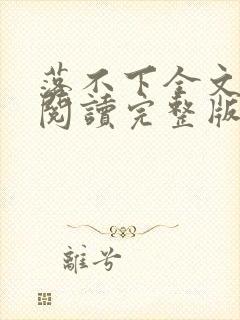 落不下全文
閱讀完整版
離兮